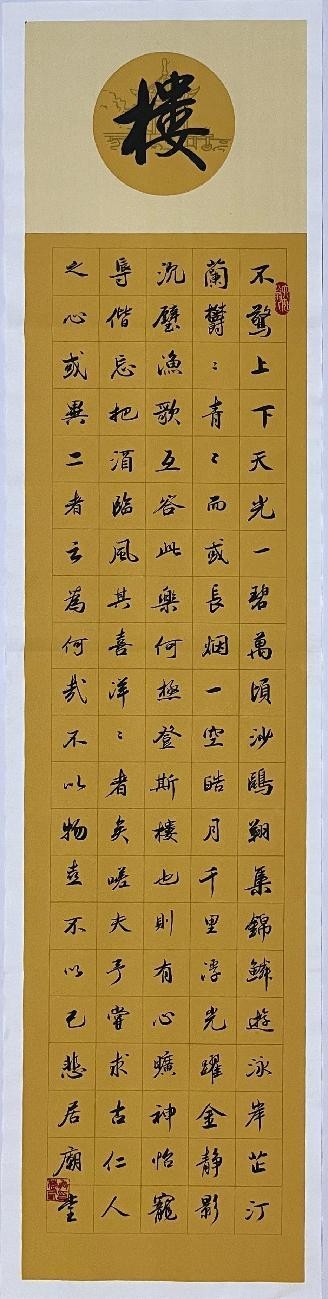 樓
不驚上下天光一碧萬頃沙鷗翔集錦鱗遊泳岸芷汀
蘭鬱〻青〻而或長烟一空皓月千里浮光躍金静影
沉璧漁歌互答此樂何極登斯樓也則有心曠神怡寵
辱偕忘把酒臨風其喜洋〻者矣嗟夫予嘗求古仁人
之心或異二者之為何哉不以物喜不以己悲居廟堂